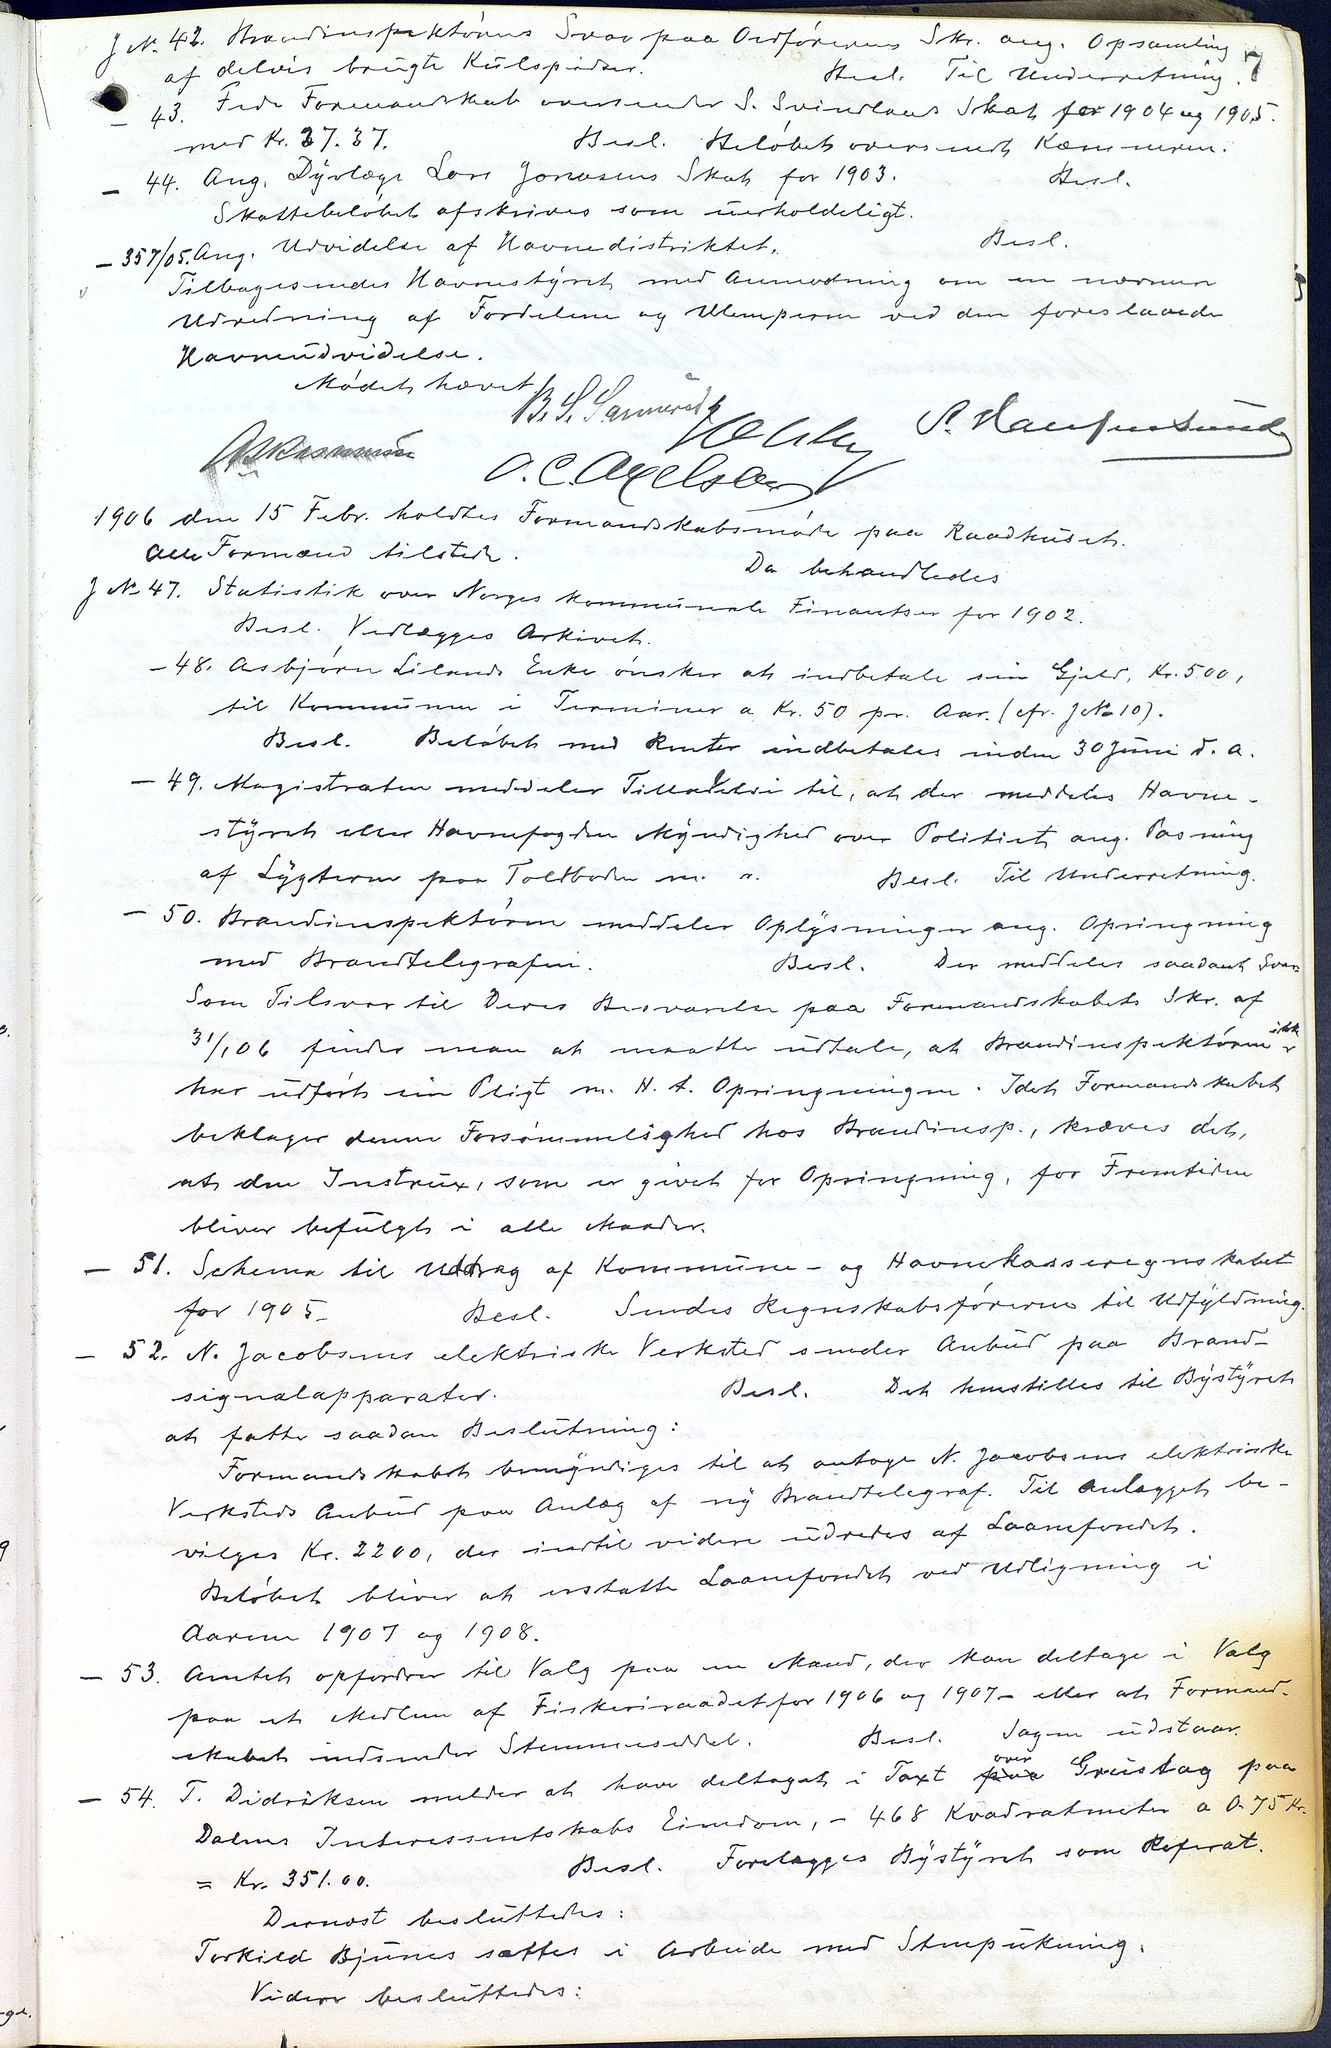 7
J No. 42. Brandinspektørens Svar paa Ordførerens Skr. ang. Opsamling
af delvis brugte Kulspidser. Besl. Til Underretning.
- 43. Fede Formandskab oversender S. Svindlands Skat for 1904 og 1905.
med Kr. 37.37. Besl. Beløbet oversendt Kæmneren.
- 44. Ang. Dyrlæge Lars Jonasens Skat for 1903. Besl.
Skattebeløbet afskrives som uerholdeligt.
- 357/05. Ang. Udvidelse af Havnedistriktet. Besl.
Tilbagesendes Havnestyret med Anmodning om en nærmere
Udredning af Fordelene og Ulemperne ved den foreslaaede
Havneudvidelse.
Mødet hævet
B. S. Sannerud
A. Rasmussen O. C. Axelsen
1906 den 15 Febr. holdtes Formandskabsmøde paa Raadhuset.
Alle Formænd tilstede. Da behandledes
J No 47. Statistik over Norges kommunale Finantser for 1902.
Besl. Vedlægges Arkivet.
- 48. Asbjørn Lilands Enke ønsker at indbetale sin Gjeld, Kr. 500,
til Kommunen i Terminer a Kr. 50 pr. Aar. (cfr. J No 10).
Besl. Beløbet med Renter indbetales inden 30 Juni d. a.
- 49. Magistraten meddeler Tilladelse til, at der meddeles Havne-
styret eller Havnefogden Myndighed over Politiet ang. Pasning
af Lygterne paa Toldboden m. v. Besl. Til Underretning.
- 50. Brandinspektøren meddeler Oplysninger ang. Opringning
med Brandtelegrafen. Besl. Der meddeles saadant Svar
Som Tilsvar til Deres Besvarelse paa Formandskabets Skr. af
31/1 06 finder man at maatte udtale, at Brandinspektøren ikke
har udført sin Pligt m. H. t. Opringningen. Idet Formandskabet
beklager denne Forsømmelighed hos Brandinsp., kræves det,
at den Instrux, som er givet for Opringning, for Fremtiden
bliver befulgt i alle Maader.
- 51. Schema til Uddrag af Kommune- og Havnekasseregnskabet
for 1905- Besl. Sendes Regnskabsførerne til Udfyldning.
- 52. N. Jacobsens elektriske Verksted sender Anbud paa Brand-
signalapparater. Besl. Det henstilles til Bystyret
at fatte saadan Beslutning:
Formandskabet bemyndiges til at antage N. Jacobsens elektriske
Verksteds Anbud paa Anlæg af ny Brandtelegraf. Til Anlægget be-
vilges Kr. 2200, der indtil videre udredes af Laanefondet.
Beløbet bliver at erstatte Laanefondet ved Udligning i
Aarene 1907 og 1908.
- 53. Amtet opfordrer til Valg paa en Mand, der kan deltage i Valg
paa et Medlem af Fiskeriraadet for 1906 og 1907 - eller at Formand-
skabet indsender Stemmeseddel. Besl. Sagen udstaar.
- 54. T. Didriksen melder at have deltaget i Taxt paa over Grustag paa
Dalens Interessentskabs Eiendom, - 468 Kvadratmeter a 0.75 Kr.
= Kr. 351.00. Besl. Forelægges Bystyret som Referat.
Dernæst besluttedes:
Torkild Bjunes sættes i Arbeide med Stenpukning.
Videre besluttedes: